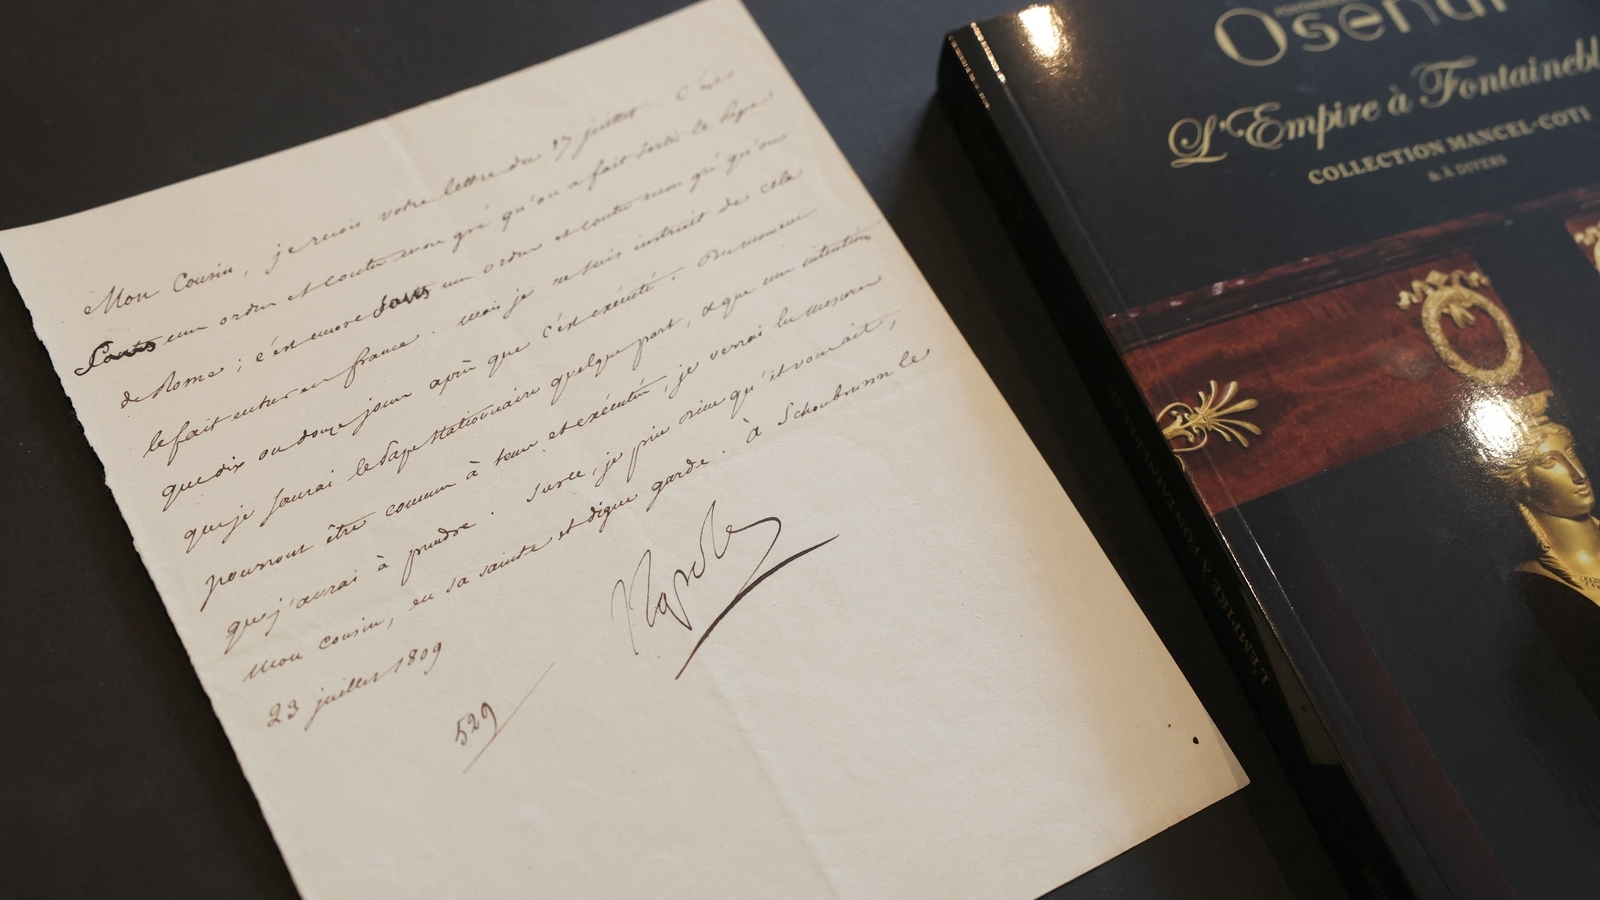 Mon Cousin, je reçois votre lettre du 17 juillet. C'est
sans mes ordres et contre mon gré qu'on a fait sortir le Pape
de Rome ; c'est encore sans mes ordres et contre mon gré qu'on
le fait entrer en france. Mais je ne suis instruit de cela
que dix ou douze jours après que c'est exécuté. Du moment
que je saurai le Pape stationnaire quelque part, & que mes intentions
pourront être connues à tems et exécutées, je verrai les mesures
que j'aurai à prendre. Sur ce, je prie Dieu qu'il vous ait,
mon cousin, en sa sainte et digne garde. à Schoenbrunn le
23 juillet 1809
Napole
529
Osenat
L'Empire à Fontainebl
COLLECTION MANCEL-COTI
& À DIVERS
L'EMPIRE A FONTAINEBLEAU